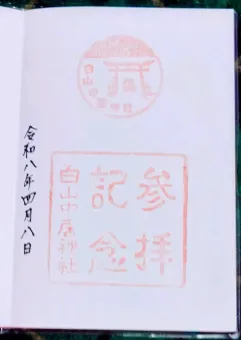 白山中居神社
参拝
記念
白山中居神社
令和八年四月八日